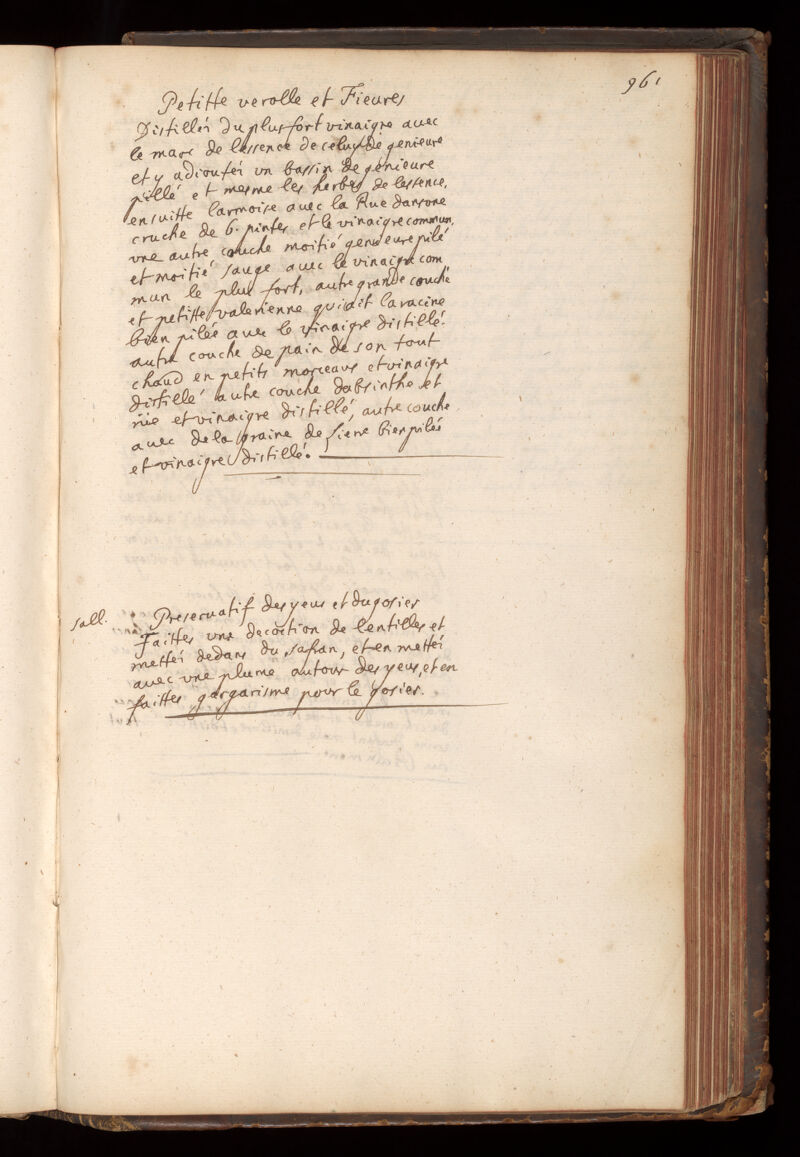 961
Petitte verolle et Fieures
Distillés du plus fort vinaigre avec
le marc de lessence de celuy de genieure
et y adioutés un bassin de genieure
pillé et mesme les herbes de lessence,
ensuitte larmoise avec la Rue dans une
cruche de 6. pintes et le vinaigre commun,
vne autre couche moitié genieure pilé
et moitié sauge avec le vinaigre com
mun le plus fort, autre grande couche
et petitte valerienne qui ait la racine
bien pilée avec le vinaigre distillé.
autre couche de pain de son tout
chaud en petits morceaux et vinaigre
distillé autre couche dabsinthe et
rüe et vinaigre distillé, autre couche
avec de la graine de lierre bien pilée
et vinaigre distillé.
sall. Preseruatif des yeux et du gosier
Faittes vne decoction de lentilles et
mettés dedans du safran, et en mettés
avec vne plume autour des yeux, et en
faittes gargarisme pour le gosier.